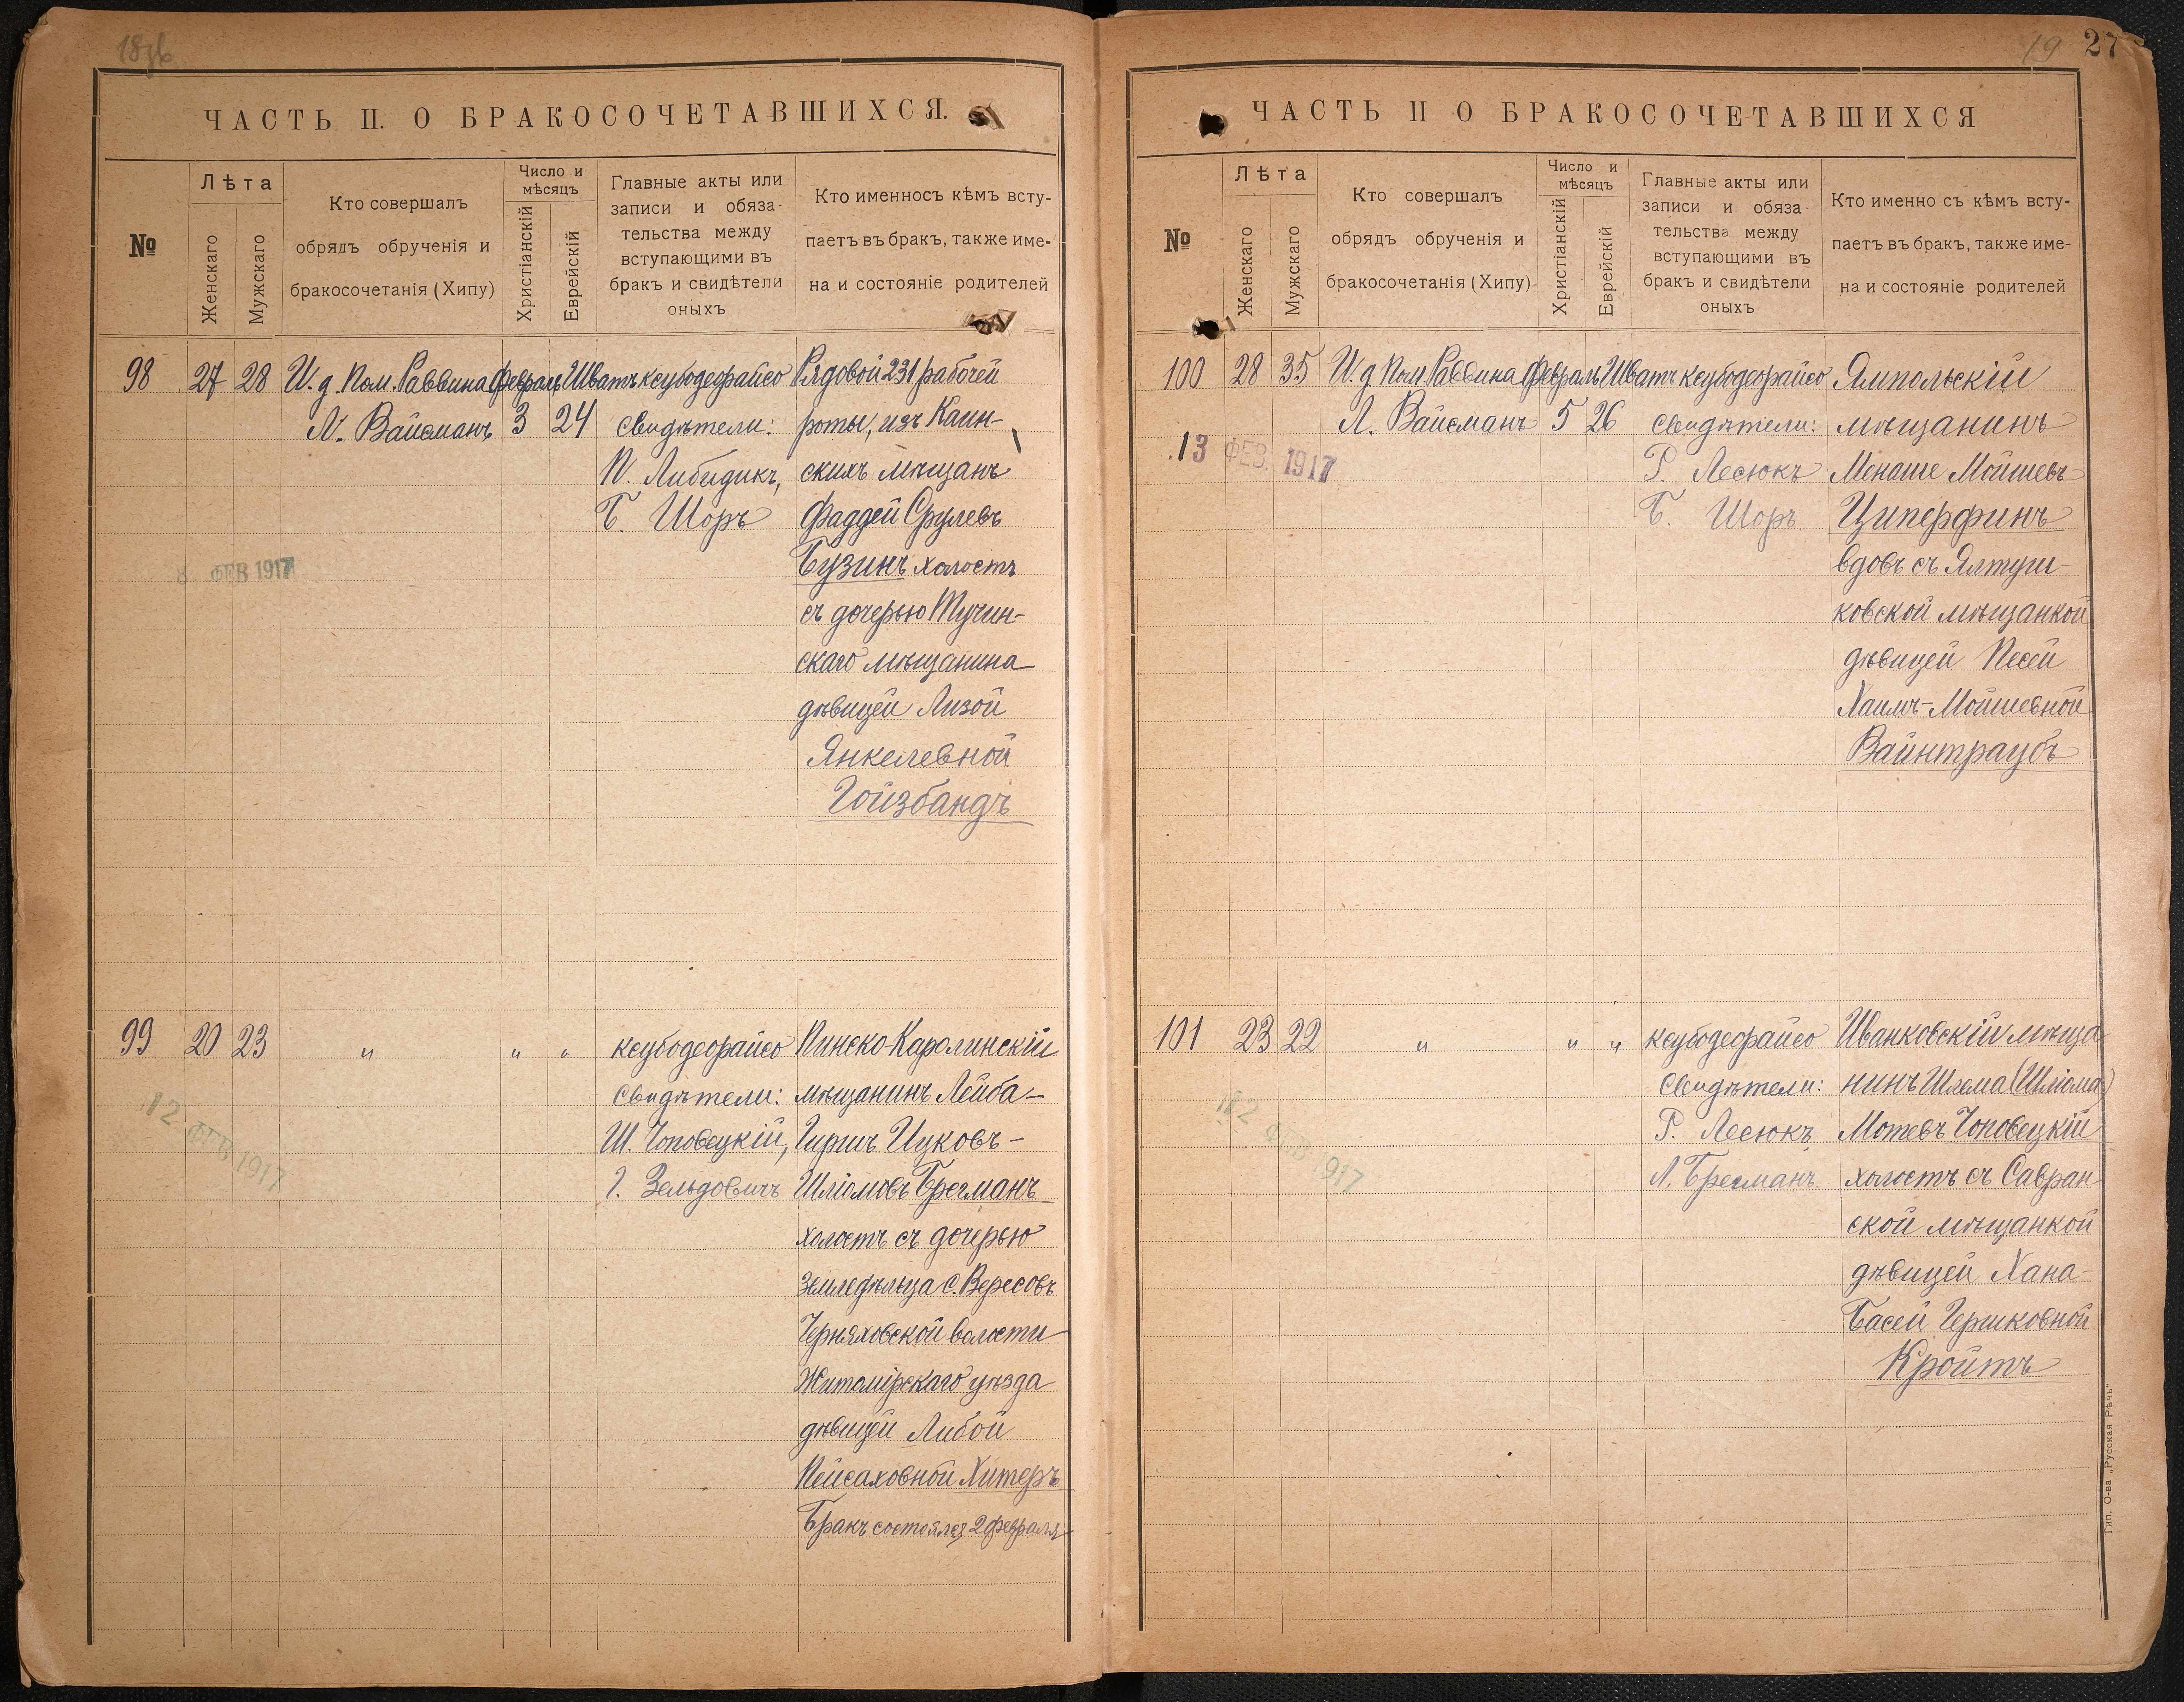 ЧАСТЬ II. О БРАКОСОЧЕТАВШИХСЯ.
№
Лѣта
Женскаго
Мужскаго
Кто совершалъ
обрядъ обрученія и
бракосочетанія (Хипу)
Число и
мѣсяцъ
Христіанскій
Еврейскій
Главные акты или
записи и обяза-
тельства между
вступающими въ
бракъ и свидѣтели
оныхъ
Кто именносъ кѣмъ всту-
паетъ въ бракъ, также име-
на и состояніе родителей
98 27 28 И. д. Пом. Раввина Февраль Шватъ ксубодеорайсо Рядовой 231 рабочей
Л. Вайсманъ 3 24 свидѣтели: роты, изъ Каин-
П. Либидикъ, скихъ мѣщанъ
Б. Шоръ Фаддей Срулевъ
8 ФЕВ 1917
Бузинъ холостъ
съ дочерью Тучин-
скаго мѣщанина
дѣвицей Лизой
Янкелевной
Гойзбандъ
99 20 23 " " " ксубодеорайсо Пинско-Каролинскій
свидѣтели: мѣщанинъ Лейба-
12 ФЕВ 1917
Ш. Чоповецкій, Гиршъ Ицковъ-
Г. Зельдовичъ Шліомовъ Брегманъ
холостъ съ дочерью
земледѣльца с. Вересовъ
Черняховской волости
Житомірскаго уѣзда
дѣвицей Либой
Пейсаховной Хитеръ
Бракъ состоялся 2 февраля
19 27
ЧАСТЬ II О БРАКОСОЧЕТАВШИХСЯ
№
Лѣта
Женскаго
Мужскаго
Кто совершалъ
обрядъ обрученія и
бракосочетанія (Хипу)
Число и
мѣсяцъ
Христіанскій
Еврейскій
Главные акты или
записи и обяза
тельства между
вступающими въ
бракъ и свидѣтели
оныхъ
Кто именно съ кѣмъ всту-
паетъ въ бракъ, также име-
на и состояніе родителей
100 28 35 И. д Пом. Раввина Февраль Шватъ ксубодеорайсо Ямпольскій
Л. Вайсманъ 5 26 свидѣтели: мѣщанинъ
13 ФЕВ. 1917
Р. Лесюкъ Менаше Мойшевъ
Б. Шоръ Циперфинъ
вдовъ съ Ялтуш-
ковской мѣщанкой
дѣвицей Песей
Хаимъ-Мойшевной
Вайнтраубъ
101 23 22 " " " ксубодеорайсо Иванковскій мѣща
свидѣтели: нинъ Шлема (Шліома)
12 ФЕВ 1917
Р. Лесюкъ Мотевъ Чоповецкій
Л. Брегманъ холостъ съ Савран
ской мѣщанкой
дѣвицей Хана-
Басей Гершковной
Кройтъ
Тип. О-ва „Русская Рѣчь“